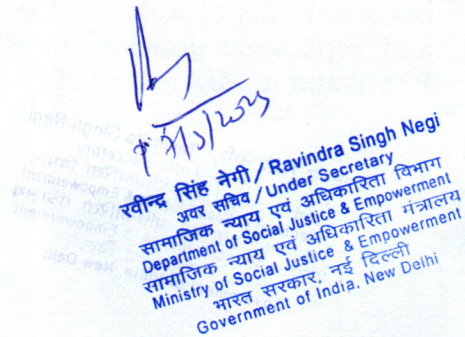 रवीन्द्र सिंह नेगी / Ravindra Singh Negi
अवर सचिव / Under Secretary
सामाजिक न्याय एवं अधिकारिता विभाग
Department of Social Justice & Empowerment
सामाजिक न्याय एवं अधिकारिता मंत्रालय
Ministry of Social Justice & Empowerment
भारत सरकार, नई दिल्ली
Government of India, New Delhi